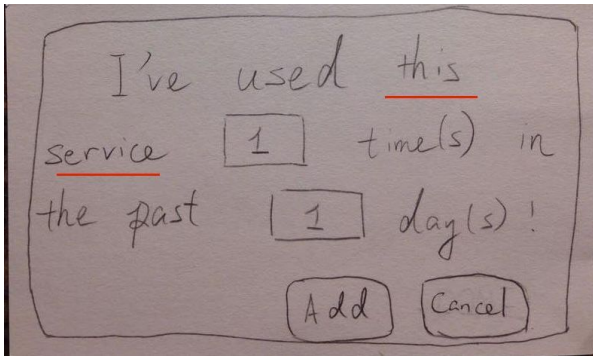 I've used this
service 1 time(s) in
the past 1 day(s)!
Add Cancel